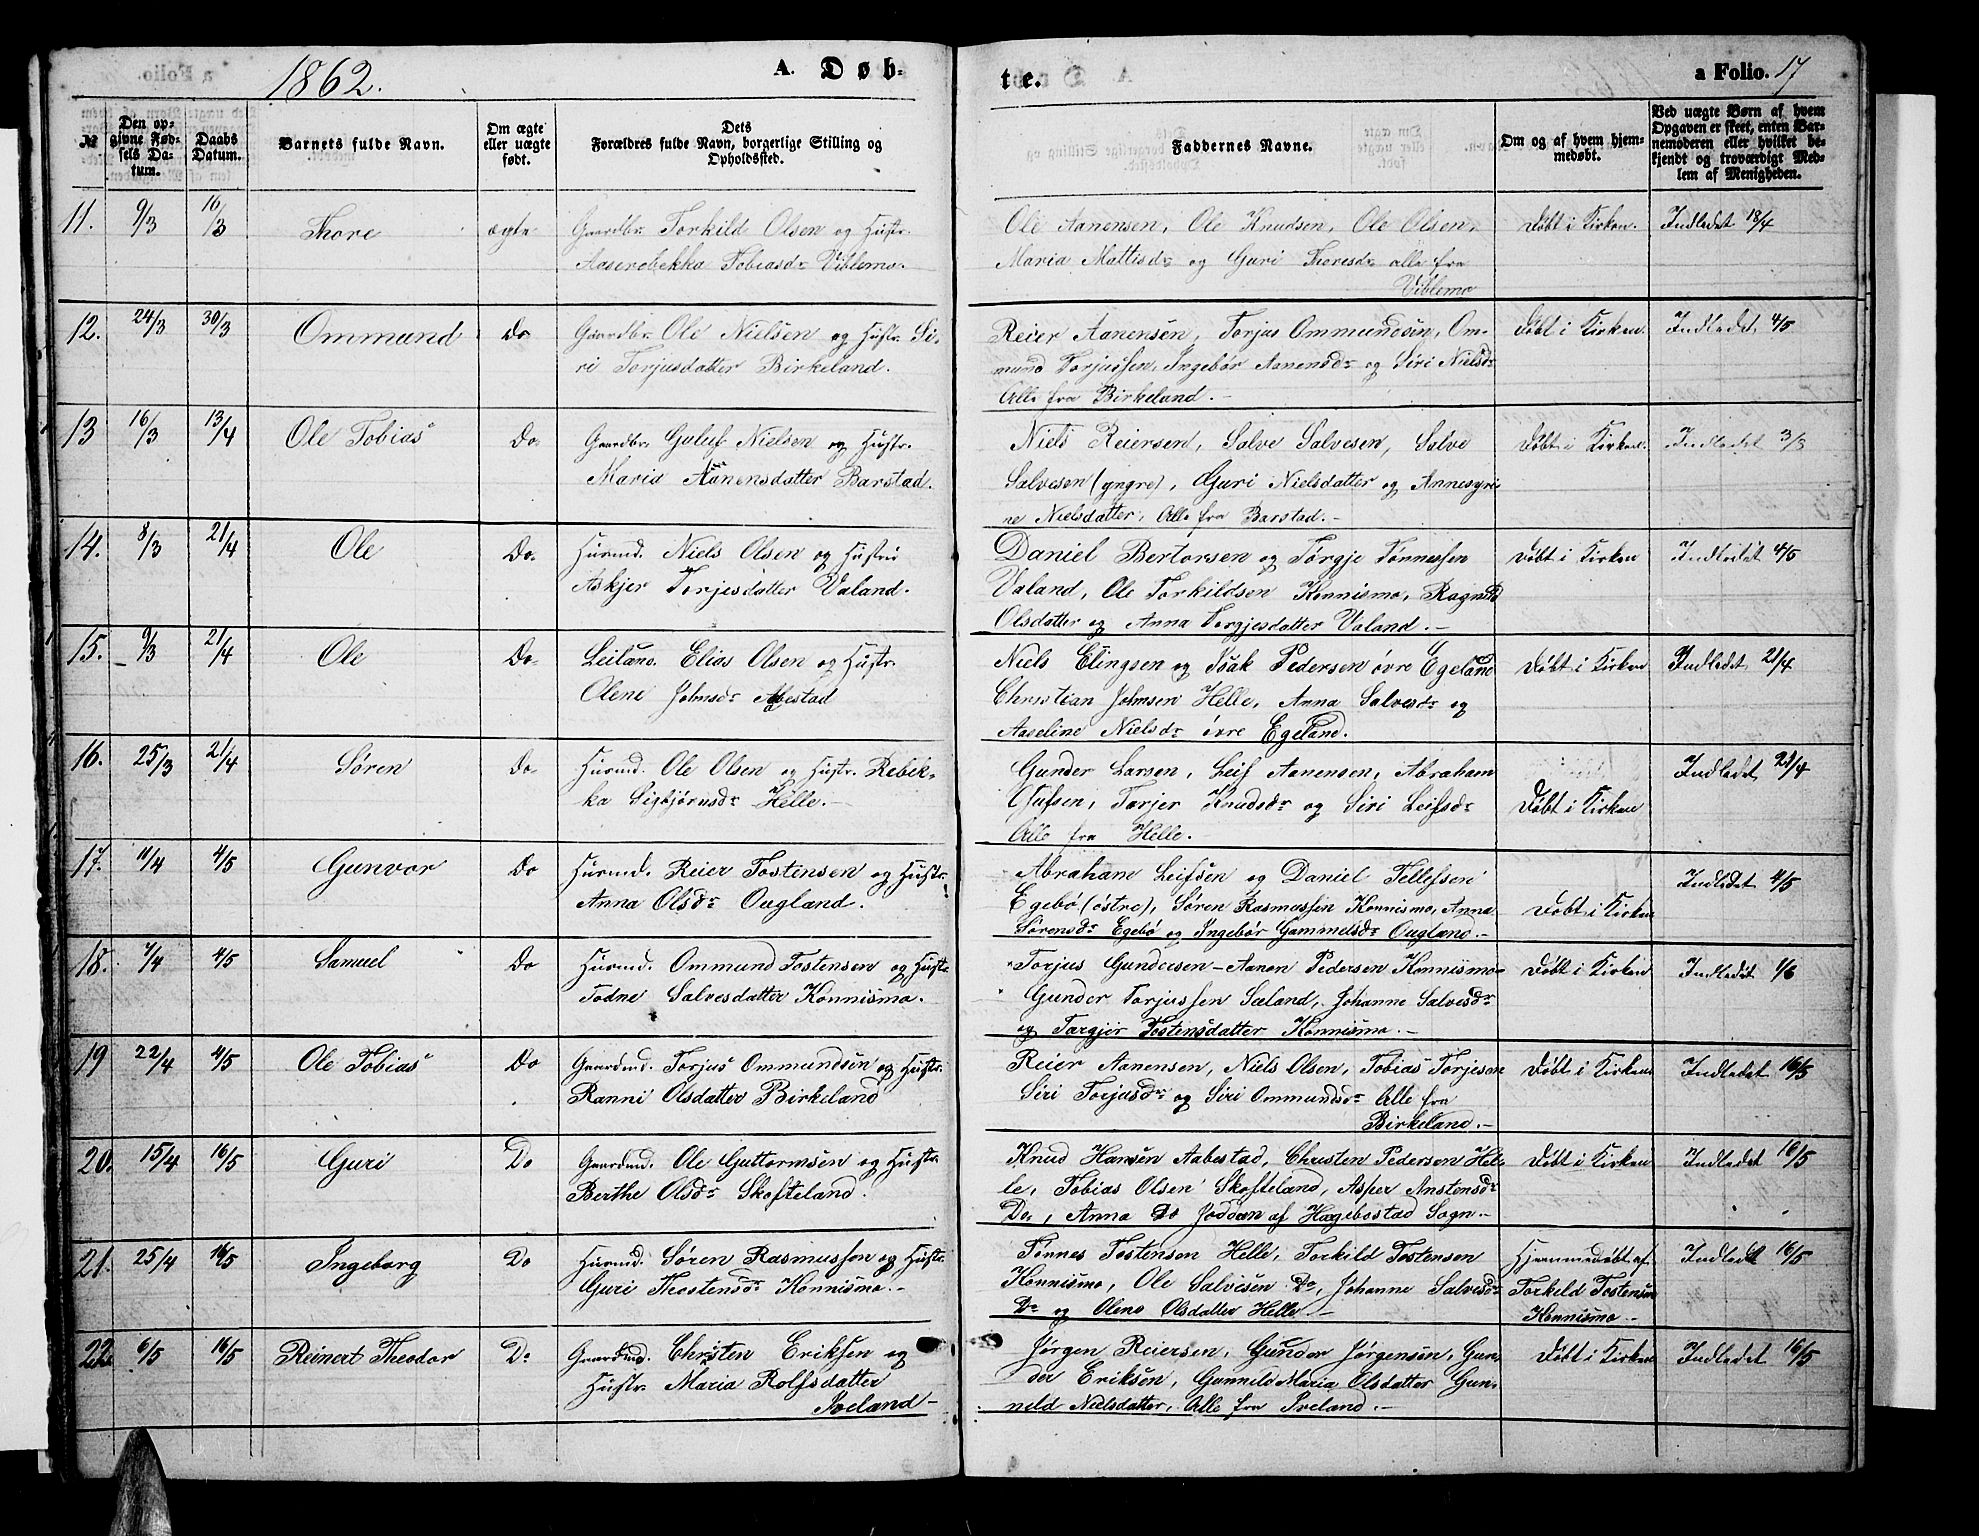 1862.
A. Døb-
te.
a Folio. 17
№
Den op-
givne Fød-
sels Da-
tum.
Daabs
Datum.
Barnets fulde Navn.
Om ægte
eller uægte
født.
Dets
Forældres fulde Navn, borgerlige Stilling og
Opholdssted.
Faddernes Navne.
Om og af hvem hjem-
medøbt.
Ved uægte Børn af hvem
Opgaven er skeet, enten Bar-
nemoderen eller hvilket be-
kjendt og troværdigt Med-
lem af Menigheden.
11. 9/3 16/3 Thore ægte Gaardbr. Torkild Olsen og Hustr.
Aaserebekka Tobiasdr Viblemo.
Ole Aanensen, Ole Knudsen, Ole Olsen,
Maria Mattisdr og Guri Thoresdr alle fra
Viblemo
Døbt i Kirken. Indledet 18/4
12. 24/3 30/3 Ommund Do Gaardbr. Ole Nielsen og Hustr. Si-
ri Torjusdatter Birkeland.
Reier Aanensen, Torjus Ommundsen, Om-
mund Torjussen, Ingebør Aanensdr og Siri Nielsdr
Alle fra Birkeland.-
Døbt i Kirken. Indledet 4/5
13 16/3 13/4 Ole Tobias Do. Gaardbr. Guluf Nielsen og Hustr.
Maria Aanensdatter Barstad.
Niels Reiersen, Salve Salvesen, Salve
Salvesen (yngre), Guri Nielsdatter og Annesyri-
ne Nielsdatter, Alle fra Barstad.-
Døbt i Kirken. Indledet 3/3
14. 8/3 21/4 Ole Do. Huusmd. Niels Olsen og Hustru
Askjer Torjesdatter Valand.
Daniel Bertorsen og Tørgje Tønnessen
Valand, Ole Torkildsen Konnismo, Ragnild
Olsdatter og Anna Torgjesdatter Valand.-
Døbt i Kirken Indledet 4/5
15. 9/3 21/4 Ole Do. Leilænd. Elias Olsen og Hustr.
Olene Johnsdr Abestad
Niels Elingsen og Isak Pedersen øvre Egeland
Christian Johnsen Helle, Anna Salvesdr og
Aaseline Nielsdr øvre Egeland.
Døbt i Kirken Indledet 21/4
16. 25/3 21/4 Søren Do. Huusmd. Ole Olsen og Hustr. Rebek-
ka Sigbjørnsdr Helle.-
Gunder Larsen, Leif Aanensen, Abraham
Olufsen, Torjer Knudsdr og Siri Leifsdr
Alle fra Helle.-
Døbt i Kirken Indledet 21/4
17. 11/4 4/5 Gunvor Do Huusmd. Reier Tostensen og Hustr.
Anna Olsdr Ougland.
Abraham Leifsen og Daniel Tellefsen
Egebø (østre), Søren Rasmussen Konnismo, Anna
Sørensdr Egebø og Ingebør Gammelsdr Ougland.-
Døbt i Kirken Indledet 4/5
18. 7/4 4/5 Samuel Do Huusmd. Ommund Tostensen og Hustr.
Todne Salvesdatter Konnismo.
Torjus Gundersen - Aanen Pedersen Konnismo-
Gunder Torjussen Sæland, Johanne Salvesdr
og Targjer Tostensdatter Konnismo.-
Døbt i Kirken Indledet 1/6
19 22/4 4/5 Ole Tobias Do Gaardmd. Torjus Ommundsen og Hustr.
Ranni Olsdatter Birkeland
Reier Aanensen, Niels Olsen, Tobias Torjesen
Siri Torjusdr og Siri Ommundsdr Alle fra
Birkeland.-
Døbt i Kirken Indledet 16/5
20. 15/4 16/5 Guri Do Gaardmd. Ole Guttormsen og Hustr.
Berthe Olsdr Skofteland.
Knud Hansen Aabestad, Christen Pedersen Hel-
le, Tobias Olsen Skofteland, Asper Anstensdr
Do., Anna Do Joddan af Hægebostad Sogn.-
Døbt i Kirken Indledet 16/5
21. 25/4 16/5 Ingeborg Do Huusmd. Søren Rasmussen og Hustr.
Guri Thostensdr Konnismo.-
Tønnes Tostensen Helle, Torkild Tostensen
Konnismo, Ole Salvesen Do, Johanne Salvesdr
Do og Olene Olsdatter Helle.-
Hjemmedøbt af
Torkild Tostensen
Konnismo.-
Indledt 16/5
22 6/5 16/5 Reinert Theodor Do Gaardmd. Christen Eriksen og
Hustr. Maria Rolfsdatter
Iveland-
Jørgen Reiersen, Gunder Jørgensen, Gun-
der Eriksen, Gunnild Maria Olsdatter Gun-
neld Nielsdatter, Alle fra Iveland.-
Døbt i Kirken Indledet 16/5